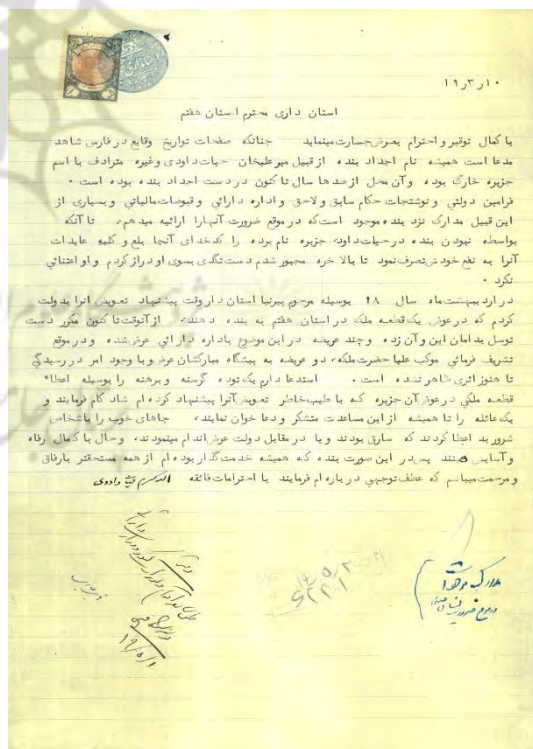 ۱۰ر۳ر۱۹
استان داری محترم استان هفتم
با کمال توقیر و احترام بعرض جسارت مینماید چنانکه صفحات تواریخ وقایع در فارس شاهد
مدعا است همیشه نام اجداد بنده از قبیل میر علیخان حیات داودی وغیره مترادف با اسم
جزیره خارگ بوده و آن محل از صد ها سال تا کنون در دست اجداد بنده بوده است ۰
فرامین دولتی و نوشتجات حکام سابق و لاحق و اداره دارائی و قبوضات مالیاتی و بسیاری از
این قبیل مدارک نزد بنده موجود است که در موقع ضرورت آنهارا ارائیه میدهم، تا آنکه
بواسطه نبودن بنده در حیات داود، جزیره نام برده را کدخدای آنجا بلع و کلیه عایدات
آنرا به نفع خود ش تصرف نمود تا بالا خره مجبور شدم دست تگدی بسوی او دراز کردم و او اعتنائی
نکرد ۰
در اردیبهشت ماه سال ۱۸ بوسیله مرحوم پیرنیا استان دار وقت پیشنهاد تعویض آنرا بدولت
کردم که در عوض یک قطعه ملک در استان هفتم به بنده دهند، از آنوقت تا کنون مکرر دست
توسل بدامان این و آن زده و چند عریضه در این موضوع باداره دارائی عرض شده و در موقع
تشریف فرمائی موکب علیا حضرت ملکه، دو عریضه به پیشگاه مبارکشان عرض و با وجود امر در رسیدگی
تا هنوز اثری ظاهر نشده است ۰ استدعا دارم یک توده گرسنه و برهنه را بوسیله اعطاء
قطعه ملکی در عوض آن جزیره که با طیب خاطر تعویض آنرا پیشنهاد کرده ام شاد کام فرمایند و
یک عائله را تا همیشه از این مساعدت متشکر و دعا خوان نمایند، جاهای خوب را باشخاص
شرور بد اعطا کردند که سارق بودند و یا در مقابل دولت عرض اندام مینمودند، وحال با کمال رفاه
و آسایش هستند پس در این صورت بنده که همیشه خدمت گذار بوده ام از همه مستحقتر بارفاق
و مرحمت میباشم که عطف توجهی در باره ام فرمایند با احترامات فائقه